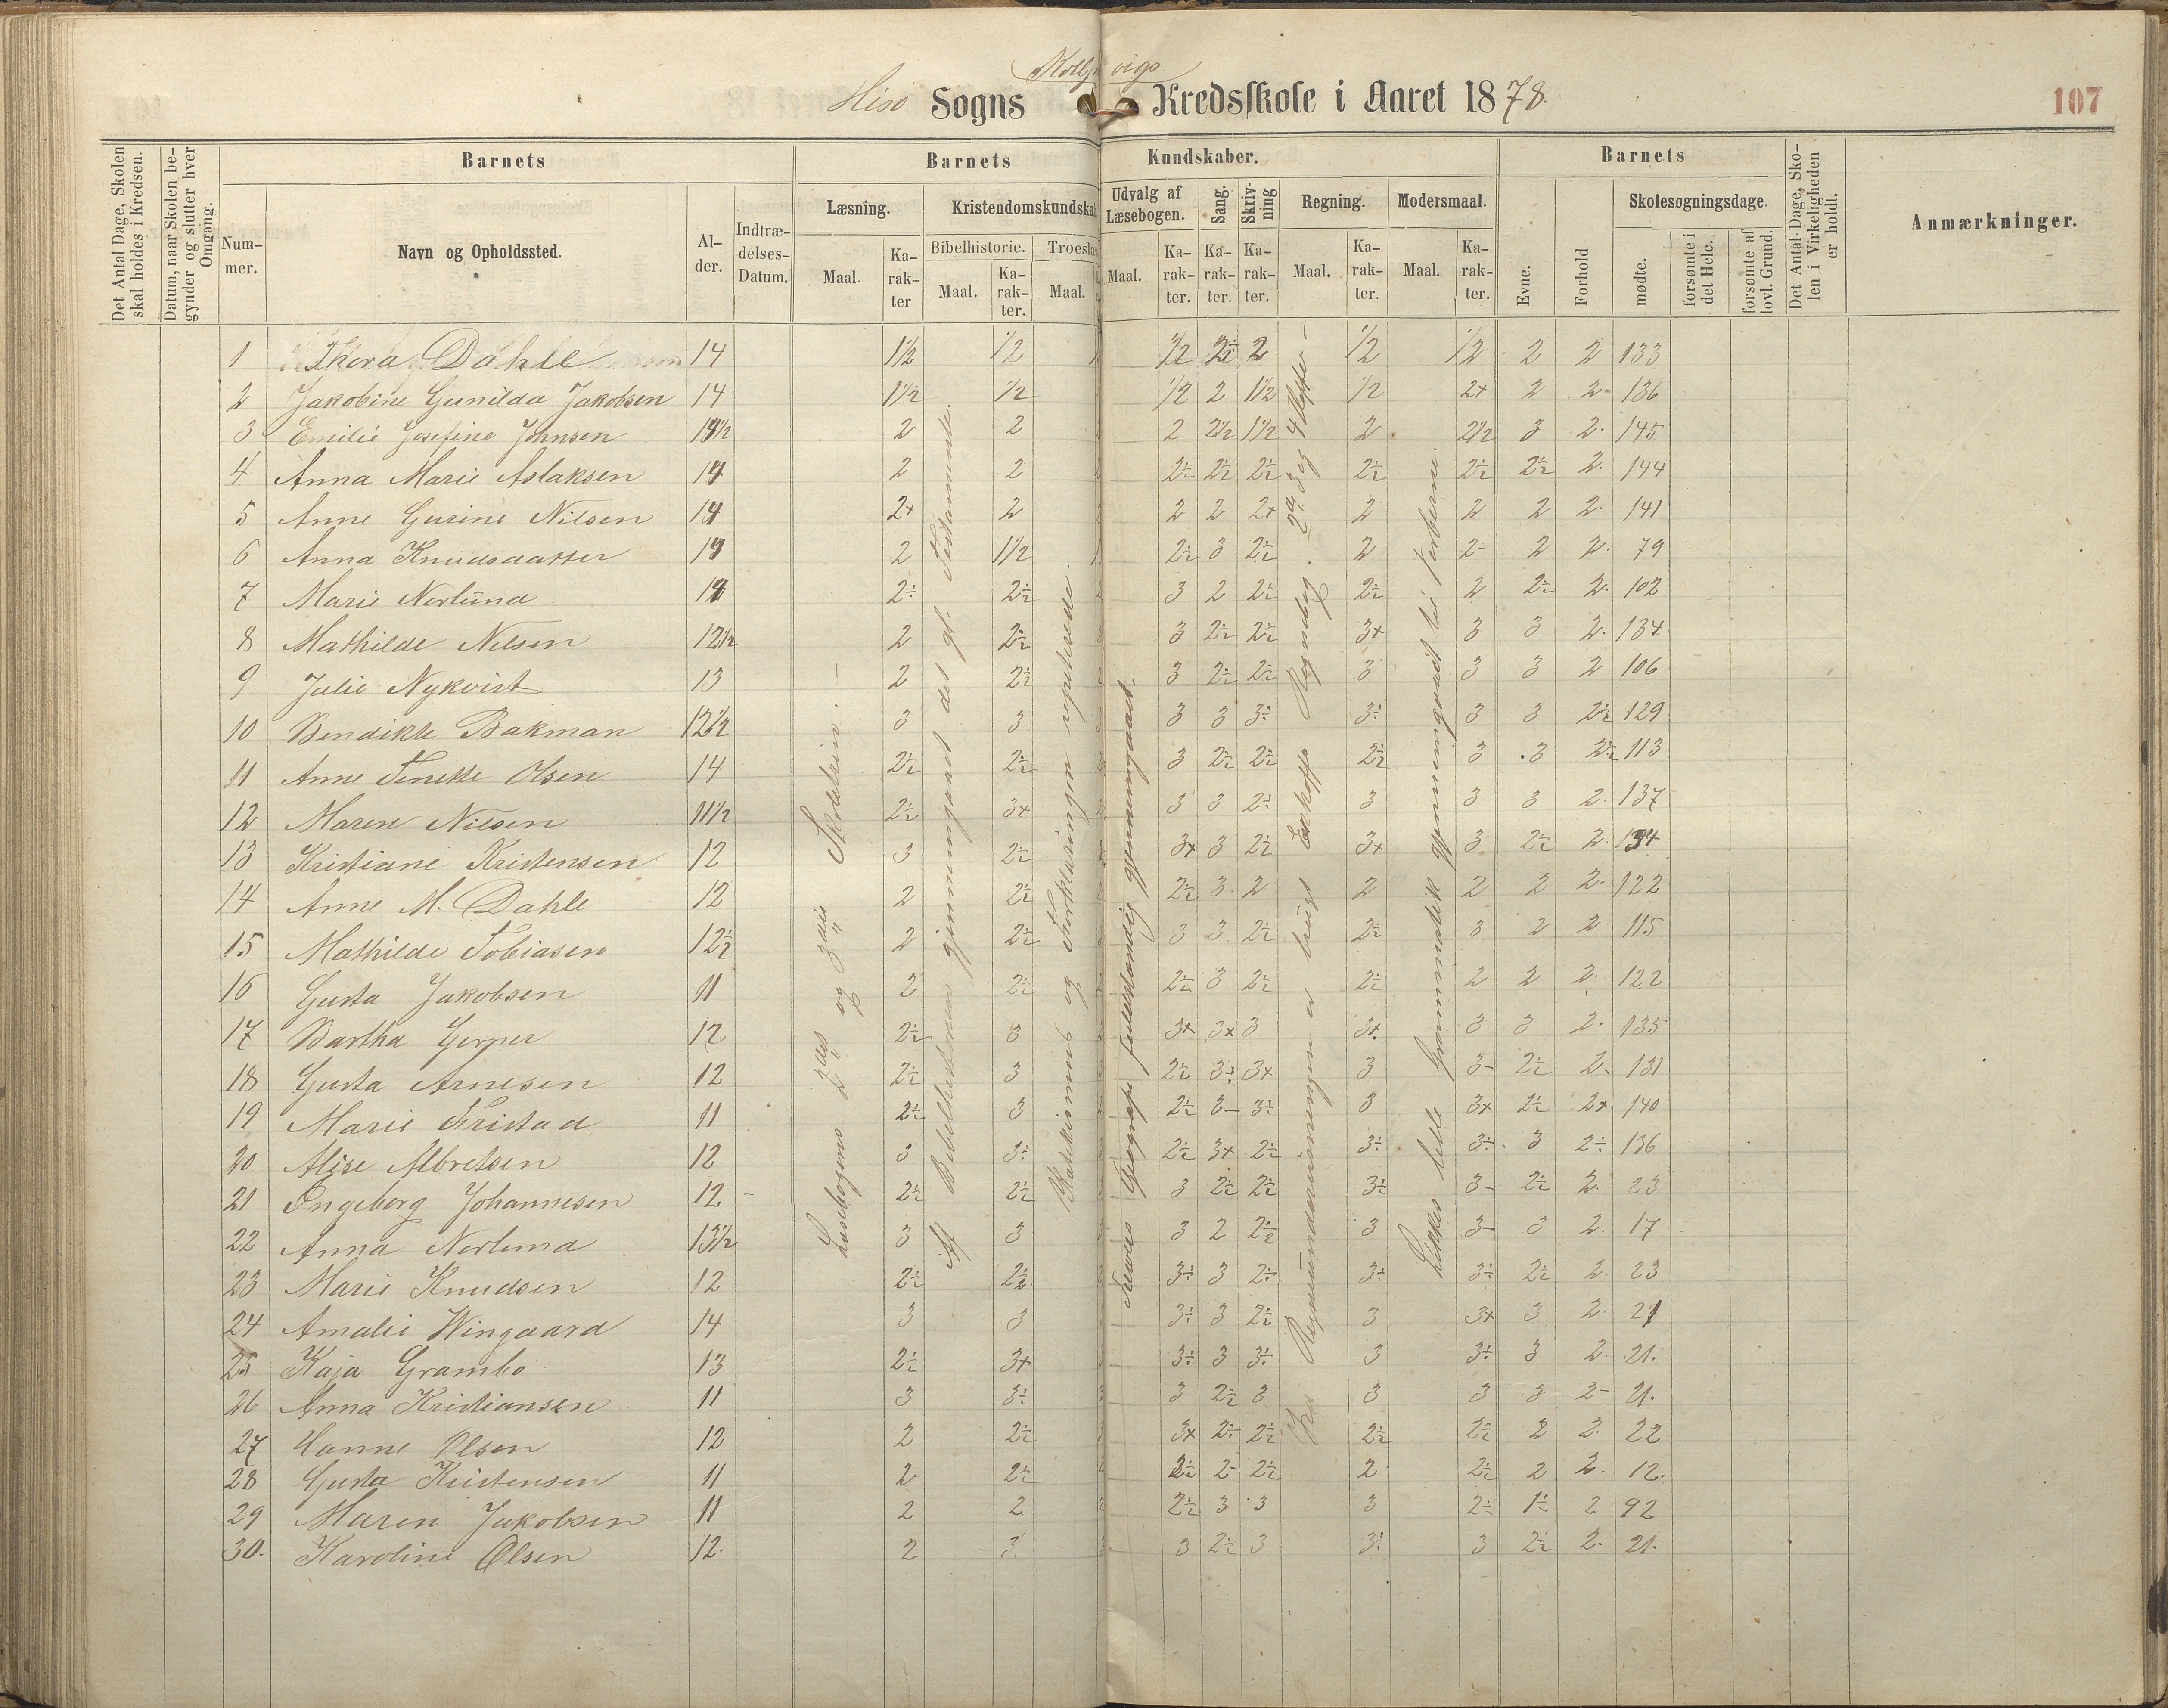 Hisø Sogns Kredsskole i Aaret 1878.
107
Det Antal Dage, Skolen skal holdes i Kredsen.
Datum, naar Skolen begynder og slutter hver Omgang.
Barnets
Nummer.
Navn og Opholdssted.
Alder.
Indtrædelses-Datum.
Barnets Kundskaber.
Læsning.
Maal.
Karakter
Kristendomskundskab
Bibelhistorie.
Maal.
Karakter.
Troeslæ
Maal.
Udvalg af Læsebogen.
Maal.
Karakter.
Sang.
Karakter.
Skrivning
Karakter.
Regning.
Maal.
Karakter.
Modersmaal.
Maal.
Karakter.
Barnets
Evne.
Forhold
Skolesøgningsdage.
mødte.
forsømte i det Hele.
forsømte af lovl. Grund.
Det Antal Dage, Skolen i Virkeligheden er holdt.
Anmærkninger.
1 Thora Dahle 14 1½ ½ ½ 2½ 2 ½ ½ 2 2 133
2 Jakobine Gunilda Jakobsen 14 1½ ½ ½ 2 1½ ½ 2+ 2 2 136
3 Emilie Josefine Johnsen 2 2 2 2½ 1½ 2 2½ 3 2. 145
4 Anna Marie Aslaksen 14 2 2 2½ 2½ 2½ 2½ 2½ 2½ 2. 144
5 Anne Gurine Nilsen 14 2+ 2 2 2 2+ 2 2 2 2. 141
6 Anna Knudsdatter 14 2 1½ 2½ 3 2½ 2 2- 2 2. 79
7 Marie Norlund 14 2÷ 2½ 3 2 2½ 2½ 2 2½ 2. 102
8 Mathilde Nilsen 12½ 2 2½ 3 2½ 2½ 3+ 3 3 2. 134
9 Julie Nykvist 13 2 2½ 3 2½ 2½ 3 3 3 2 106
10 Bendikte Bakman 12½ 3 3 3 3 3÷ 3÷ 3 3 2½ 129
11 Anne Tenette Olsen 14 2½ 2½ 3 2½ 2½ 2½ 3 3 2½ 113
12 Maren Nilsen 11½ 2½ 3+ 3 3 2÷ 3 3 3 2. 137
13 Kristiane Kristensen 12 3 2½ 3+ 3 2½ 3+ 3 2½ 2. 134
14 Anne M. Dahle 12 2 2½ 2½ 3 2 2 2 2 2. 122
15 Mathilde Tobiasen 12½ 2 2½ 3 3 2½ 2½ 3 2 2 115
16 Gusta Jakobsen 11 2 2½ 2½ 3 2½ 2½ 2 2 2. 122
17 Bartha Gerner 12 2½ 3 3+ 3+ 3 3+ 3 3 2. 135
18 Gusta Arnesen 12 2½ 3 2½ 3÷ 3+ 3 3- 2½ 2. 131
19 Marie Fristad 11 2½ 3 2½ 3- 3÷ 3 3+ 2½ 2+ 140
20 Alise Albretsen 12 3 3÷ 2½ 3+ 2½ 3÷ 3÷ 3 2÷ 136
21 Ingeborg Johannesen 12 2½ 2½ 3 2½ 2½ 3÷ 3- 2½ 2. 23
22 Anna Norlund 13½ 3 3 3 2 2½ 3 3- 3 2. 17
23 Marie Knudsen 12 2½ 2½ 3÷ 3 2÷ 3÷ 3÷ 2½ 2. 23
24 Amalie Wingaard 14 3 3 3÷ 3 2½ 3 3+ 3 2. 21
25 Kaja Grambo 13 2½ 3+ 3÷ 3 3÷ 3 3÷ 3 2. 21.
26 Anna Kristiansen 11 3 3÷ 3 2½ 3 3 3 3 2- 21.
27 Hanne Olsen 12 2 2½ 3+ 2÷ 2½ 2½ 2½ 2 2. 22
28 Gusta Kristensen 11 2 2½ 2½ 2- 2½ 2 2½ 2 2. 12.
29 Maren Jakobsen 11 2 2 2½ 3 3 3 2÷ 1½ 2 92
30. Karoline Olsen 12. 2 3 3 2½ 3 3÷ 3 2½ 2. 21.
Læsebogens 2det og 3die Skoletrin. —
Af Bibelhistorien gjennemgaaet det gl. Testamente.
Katekismus og Forklaringen repeterede.
Geografi fuldstændig gjennemgaaet.
Ved Regneundervisningen er brugt Eckhoffs Regnebog. 2det 3 og 4 Hefte —
Løkkes lille Grammatik gjennemgaaet til Verberne.